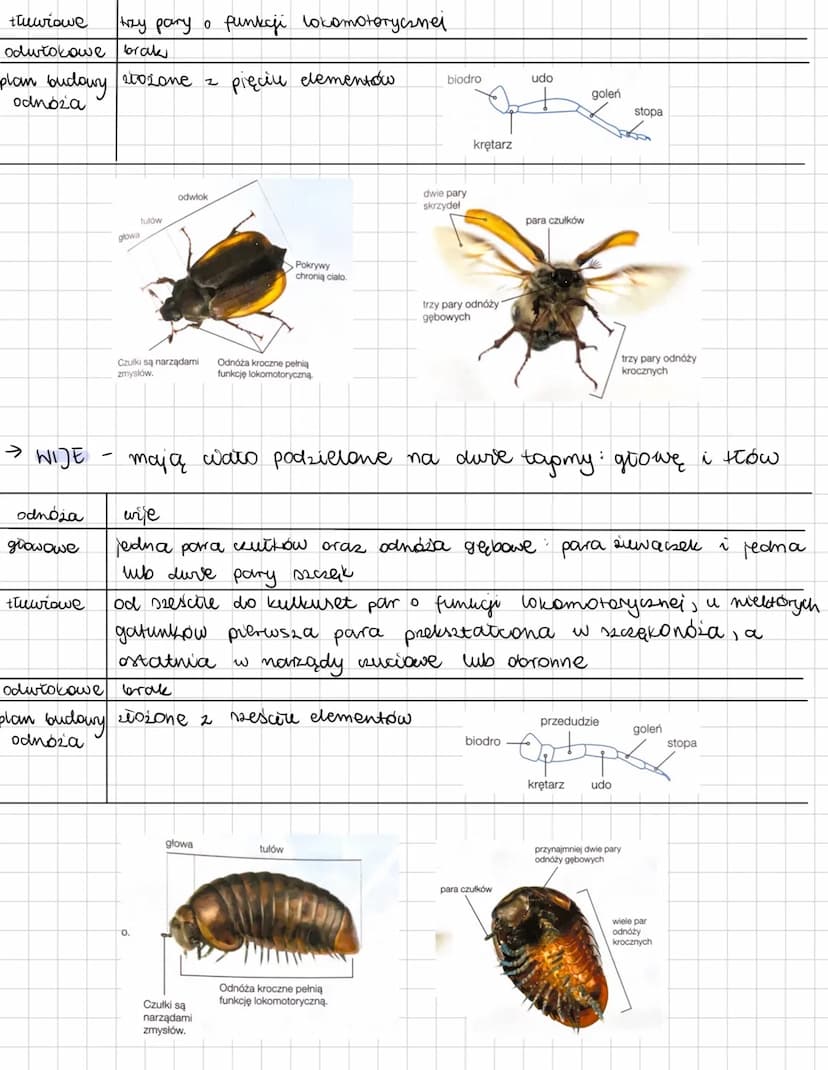 tłuwiowe trzy pary o funkcji lokomotorycznej
odwłokowe brak
plan budowy odnóża złożone z pięciu elementów
biodro
udo
goleń
stopa
krętarz
odwłok
tułów
głowa
Pokrywy
chronią ciało.
Czułki są narządami
zmysłów.
Odnóża kroczne pełnią
funkcję lokomotoryczną.
dwie pary
skrzydeł
para czułków
trzy pary odnóży
gębowych
trzy pary odnóży
krocznych
→ WIJE - mają ciało podzielone na dwie tagmy: głowę i tłów
odnóża wije
głowowe jedna para czułków oraz odnóża gębowe: para żuwaczek i jedna
lub dwie pary szczęk
tłuwiowe od sześciu do kilkuset par o funkcji lokomotorycznej, u niektórych
gatunków pierwsza para przekształcona w szczękonóża, a
ostatnia w narządy czuciowe lub obronne
odwłokowe brak
plan budowy odnóża złożone z sześciu elementów
przedudzie
biodro
goleń
stopa
krętarz
udo
głowa
tułów
o.
Odnóża kroczne pełnią
funkcję lokomotoryczną.
Czułki są
narządami
zmysłów.
przynajmniej dwie pary
odnóży gębowych
para czułków
wiele par
odnóży
krocznych